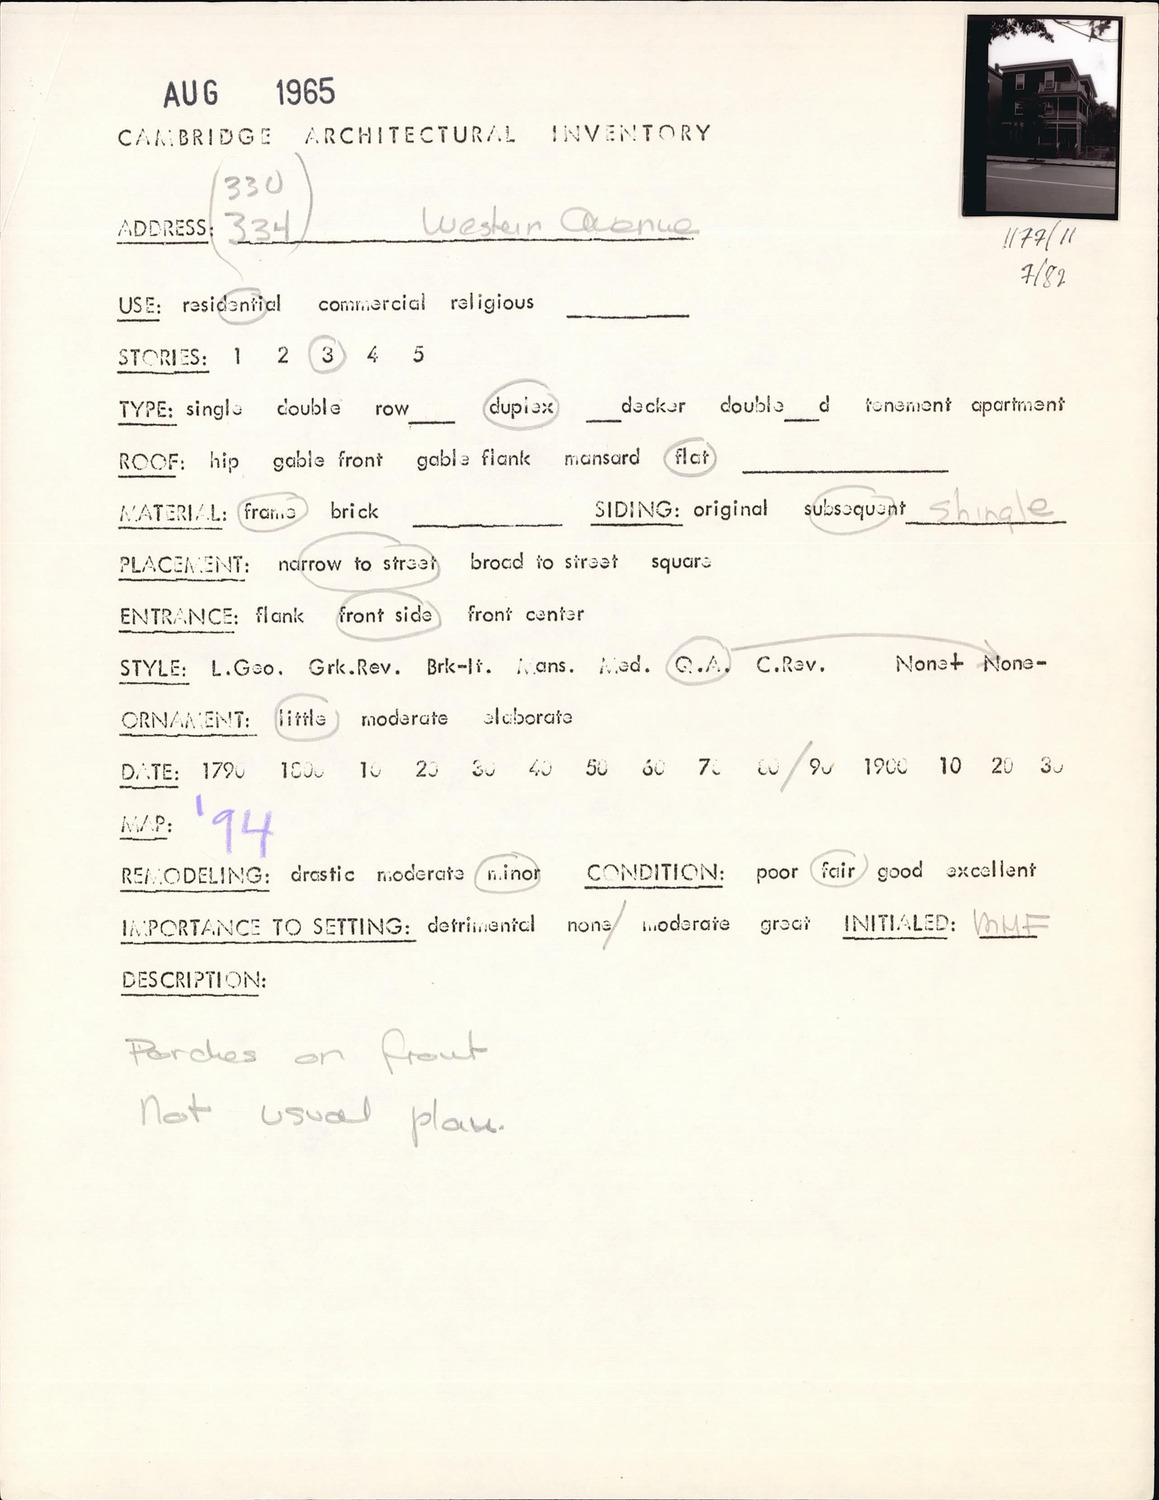 AUG 1965
CAMBRIDGE ARCHITECTURAL INVENTORY
330
ADDRESS: 334 Western Avenue
1177/11
7/82
USE: residential commercial religious
STORIES: 1 2 3 4 5
TYPE: single double row____ duplex ____decker double____d tenement apartment
ROOF: hip gable front gable flank mansard flat
MATERIAL: frame brick ________ SIDING: original subsequent shingle
PLACEMENT: narrow to street broad to street square
ENTRANCE: flank front side front center
STYLE: L.Geo. Grk.Rev. Brk-It. Mans. Med. Q.A. C.Rev. None+ None-
ORNAMENT: little moderate elaborate
DATE: 1790 1800 10 20 30 40 50 60 70 80 / 90 1900 10 20 30
MAP: '94
REMODELING: drastic moderate minor CONDITION: poor fair good excellent
IMPORTANCE TO SETTING: detrimental none/ moderate great INITIALED: MMF
DESCRIPTION:
Porches on front
Not usual plan.